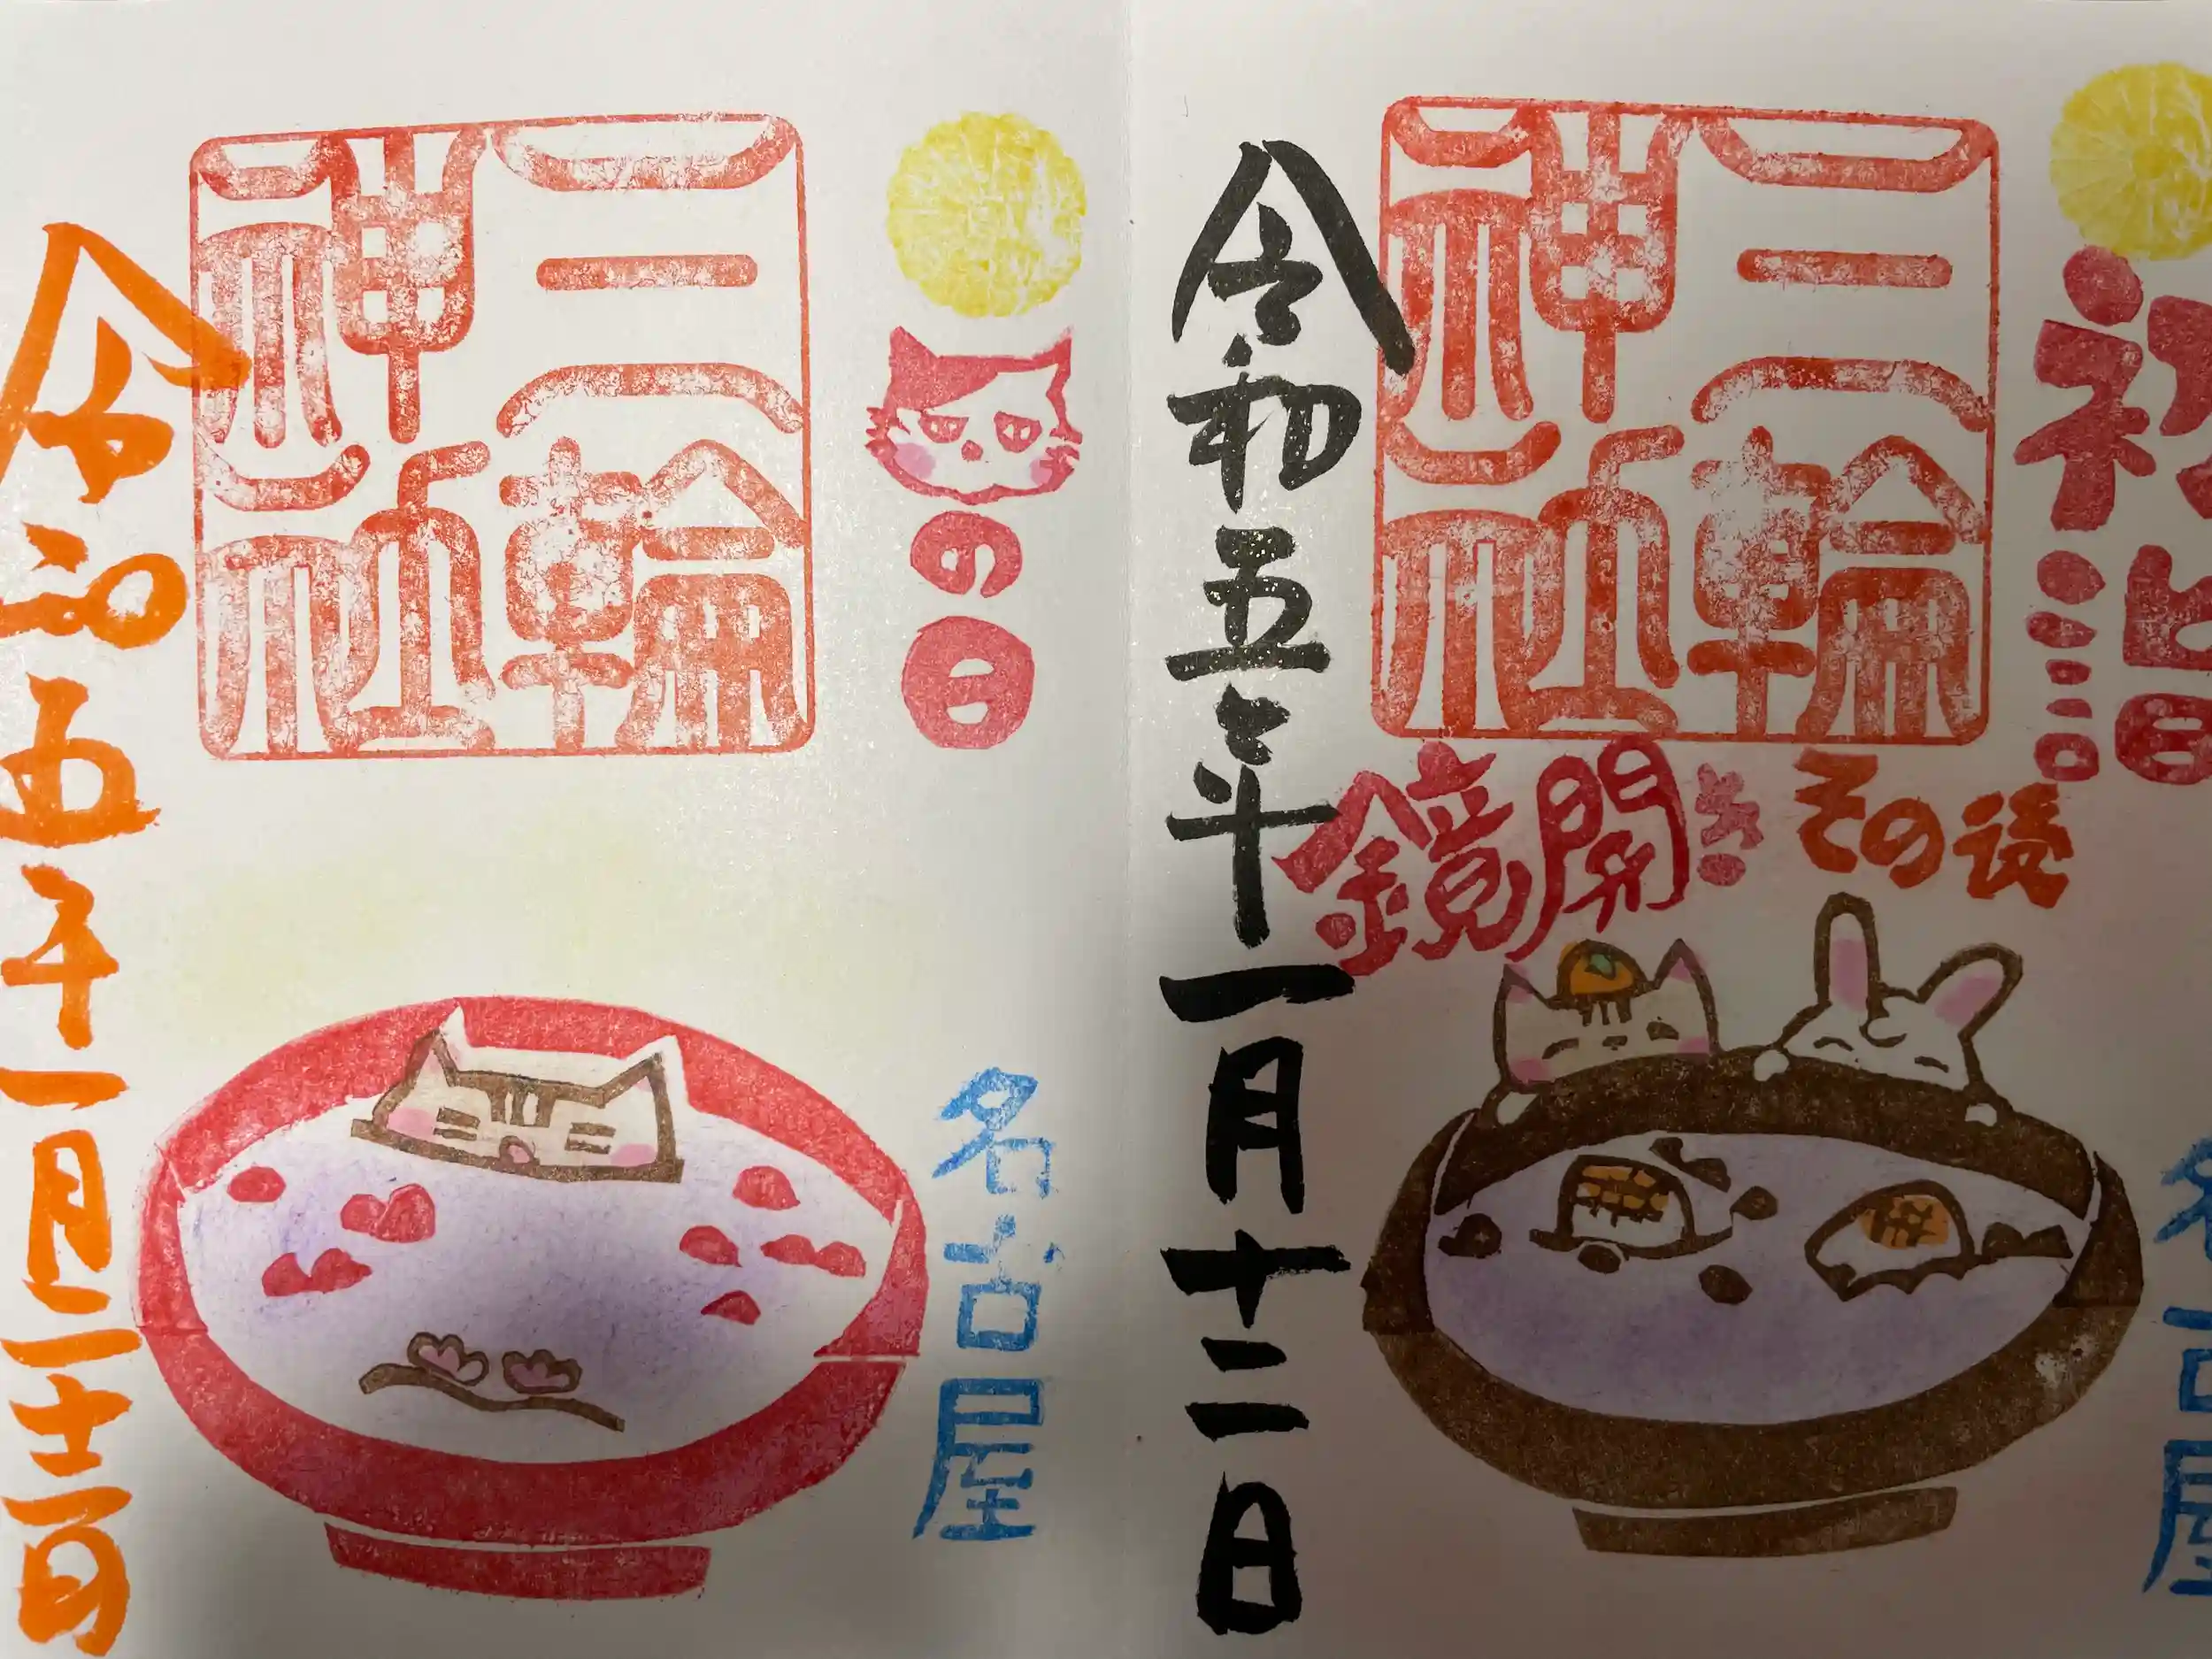 初詣
三輪
神社
鏡開き
その後
名古屋
令和五年一月十二日
の日
三輪
神社
名古屋
令和五年一月二十二日